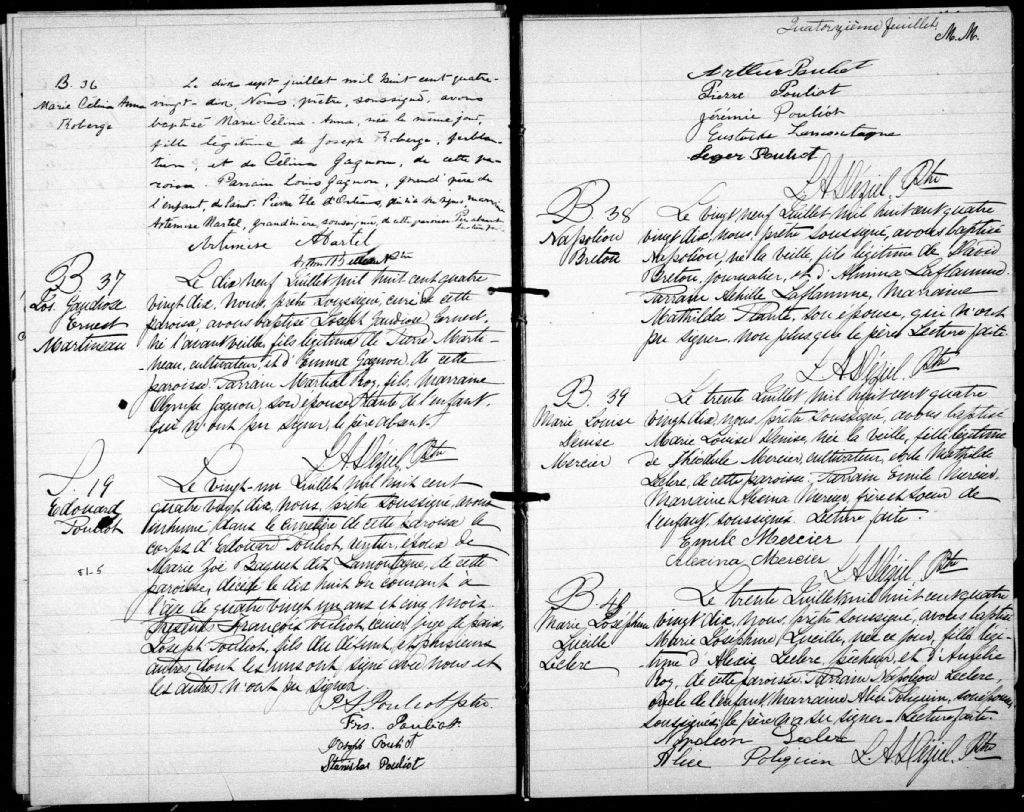 B. 36
Marie Celina Anna
Roberge
Le dix sept juillet mil huit cent quatre-
vingt-dix, Nous, prêtre, soussigné, avons
baptisé Marie-Célina-Anna, née le même jour,
fille légitime de Joseph Roberge, ferblan-
tier, et de Célina Gagnon, de cette pa-
roisse. Parrain Louis Gagnon, grand'père de
l'enfant, de Saint Pierre Ile d'Orléans, marraine
Artemise Martel, grand'mère, soussignée, de cette paroisse
Artimise Martel
B. 37
Jos. Gaudiose
Ernest
Martineau
Le dix neuf Juillet mil huit cent quatre
vingt dix, nous, prêtre soussigné, curé de cette
paroisse, avons baptisé Joseph Gaudiose Ernest,
né l'avant veille, fils légitime de Pierre Marti-
neau, cultivateur, et d'Emma Gagnon, de cette
paroisse. Parrain Martial Roy, fils, Marraine
Olympe Gagnon, son épouse, tante de l'enfant,
qui n'ont pu signer, le père absent.
L. A. Déziel, Ptre
S. 19
Edouard
Pouliot
81-5
Le vingt-un Juillet mil huit cent
quatre vingt dix, nous, prêtre soussigné, avons
inhumé dans le cimetière de cette paroisse le
corps d'Edouard Pouliot, rentier, époux de
Marie Zoé Paquet dit Lamontagne, de cette
paroisse, décédé le dix huit du courant à
l'âge de quatre vingt un ans et cinq mois.
Présents François Pouliot, juge de paix,
Joseph Pouliot, fils du défunt, et plusieurs
autres dont les uns ont signé avec nous et
les autres n'ont pu signer.
Pouliot Ptre.
Frs. Pouliot
Joseph Pouliot
Stanislas Pouliot
Quatorzième feuillet. M. M.
Arthur Pouliot
Pierre Pouliot
Jérémie Pouliot
Gustave Lamontagne
Leger Pouliot
L. A. Déziel, Ptre
B. 38
Napoléon
Breton
Le vingt neuf Juillet mil huit cent quatre
vingt dix, nous, prêtre soussigné, avons baptisé
Napoléon, né la veille, fils légitime de David
Breton, journalier, et d'Almina Laflamme.
Parrain Achille Laflamme, Marraine
Mathilda Plante, son épouse, qui n'ont
pu signer, non plus que le père. Lecture faite
L. A. Déziel, Ptre
B. 39
Marie Louise
Denise
Mercier
Le trente Juillet mil huit cent quatre
vingt dix, nous, prêtre soussigné, avons baptisé
Marie Louise Denise, née la veille, fille légitime
de Théodule Mercier, cultivateur, et de Mathilde
Leclerc, de cette paroisse. Parrain Emile Mercier,
Marraine Alexina Mercier, frère et soeur de
l'enfant, soussignés. Lecture faite.
Emile Mercier
Alexina Mercier
L. A. Déziel, Ptre
B. 40
Marie Joséphine
Lucille
Leclerc
Le trente Juillet mil huit cent quatre
vingt dix, nous, prêtre soussigné, avons baptisé
Marie Joséphine Lucille, née ce jour, fille légi-
time d'Alexis Leclerc, pêcheur, et d'Aurélie
Roy, de cette paroisse. Parrain Napoléon Leclerc,
oncle de l'enfant, marraine Alice Poliquin, son épouse,
soussignés, le père n'a su signer - Lecture faite.
Napoléon Leclerc
Alice Poliquin L. A. Déziel, Ptre